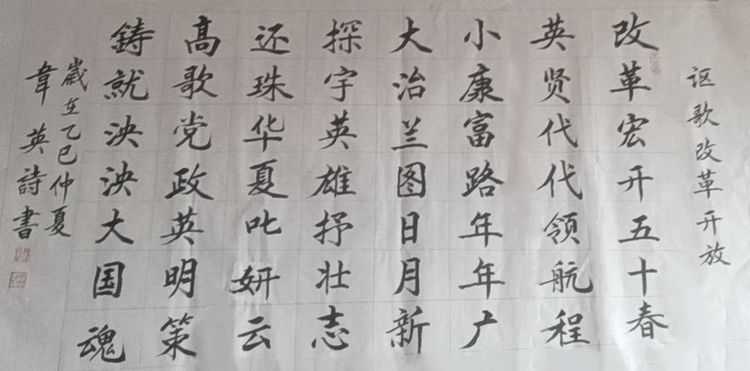 讴歌改革开放
改革宏开五十春
英贤代代领航程
小康富路年年广
大治兰图日月新
探宇英雄抒壮志
还珠华夏叱妍云
高歌党政英明策
鋳就泱泱大国魂
歲在乙巳仲夏
韋英詩書